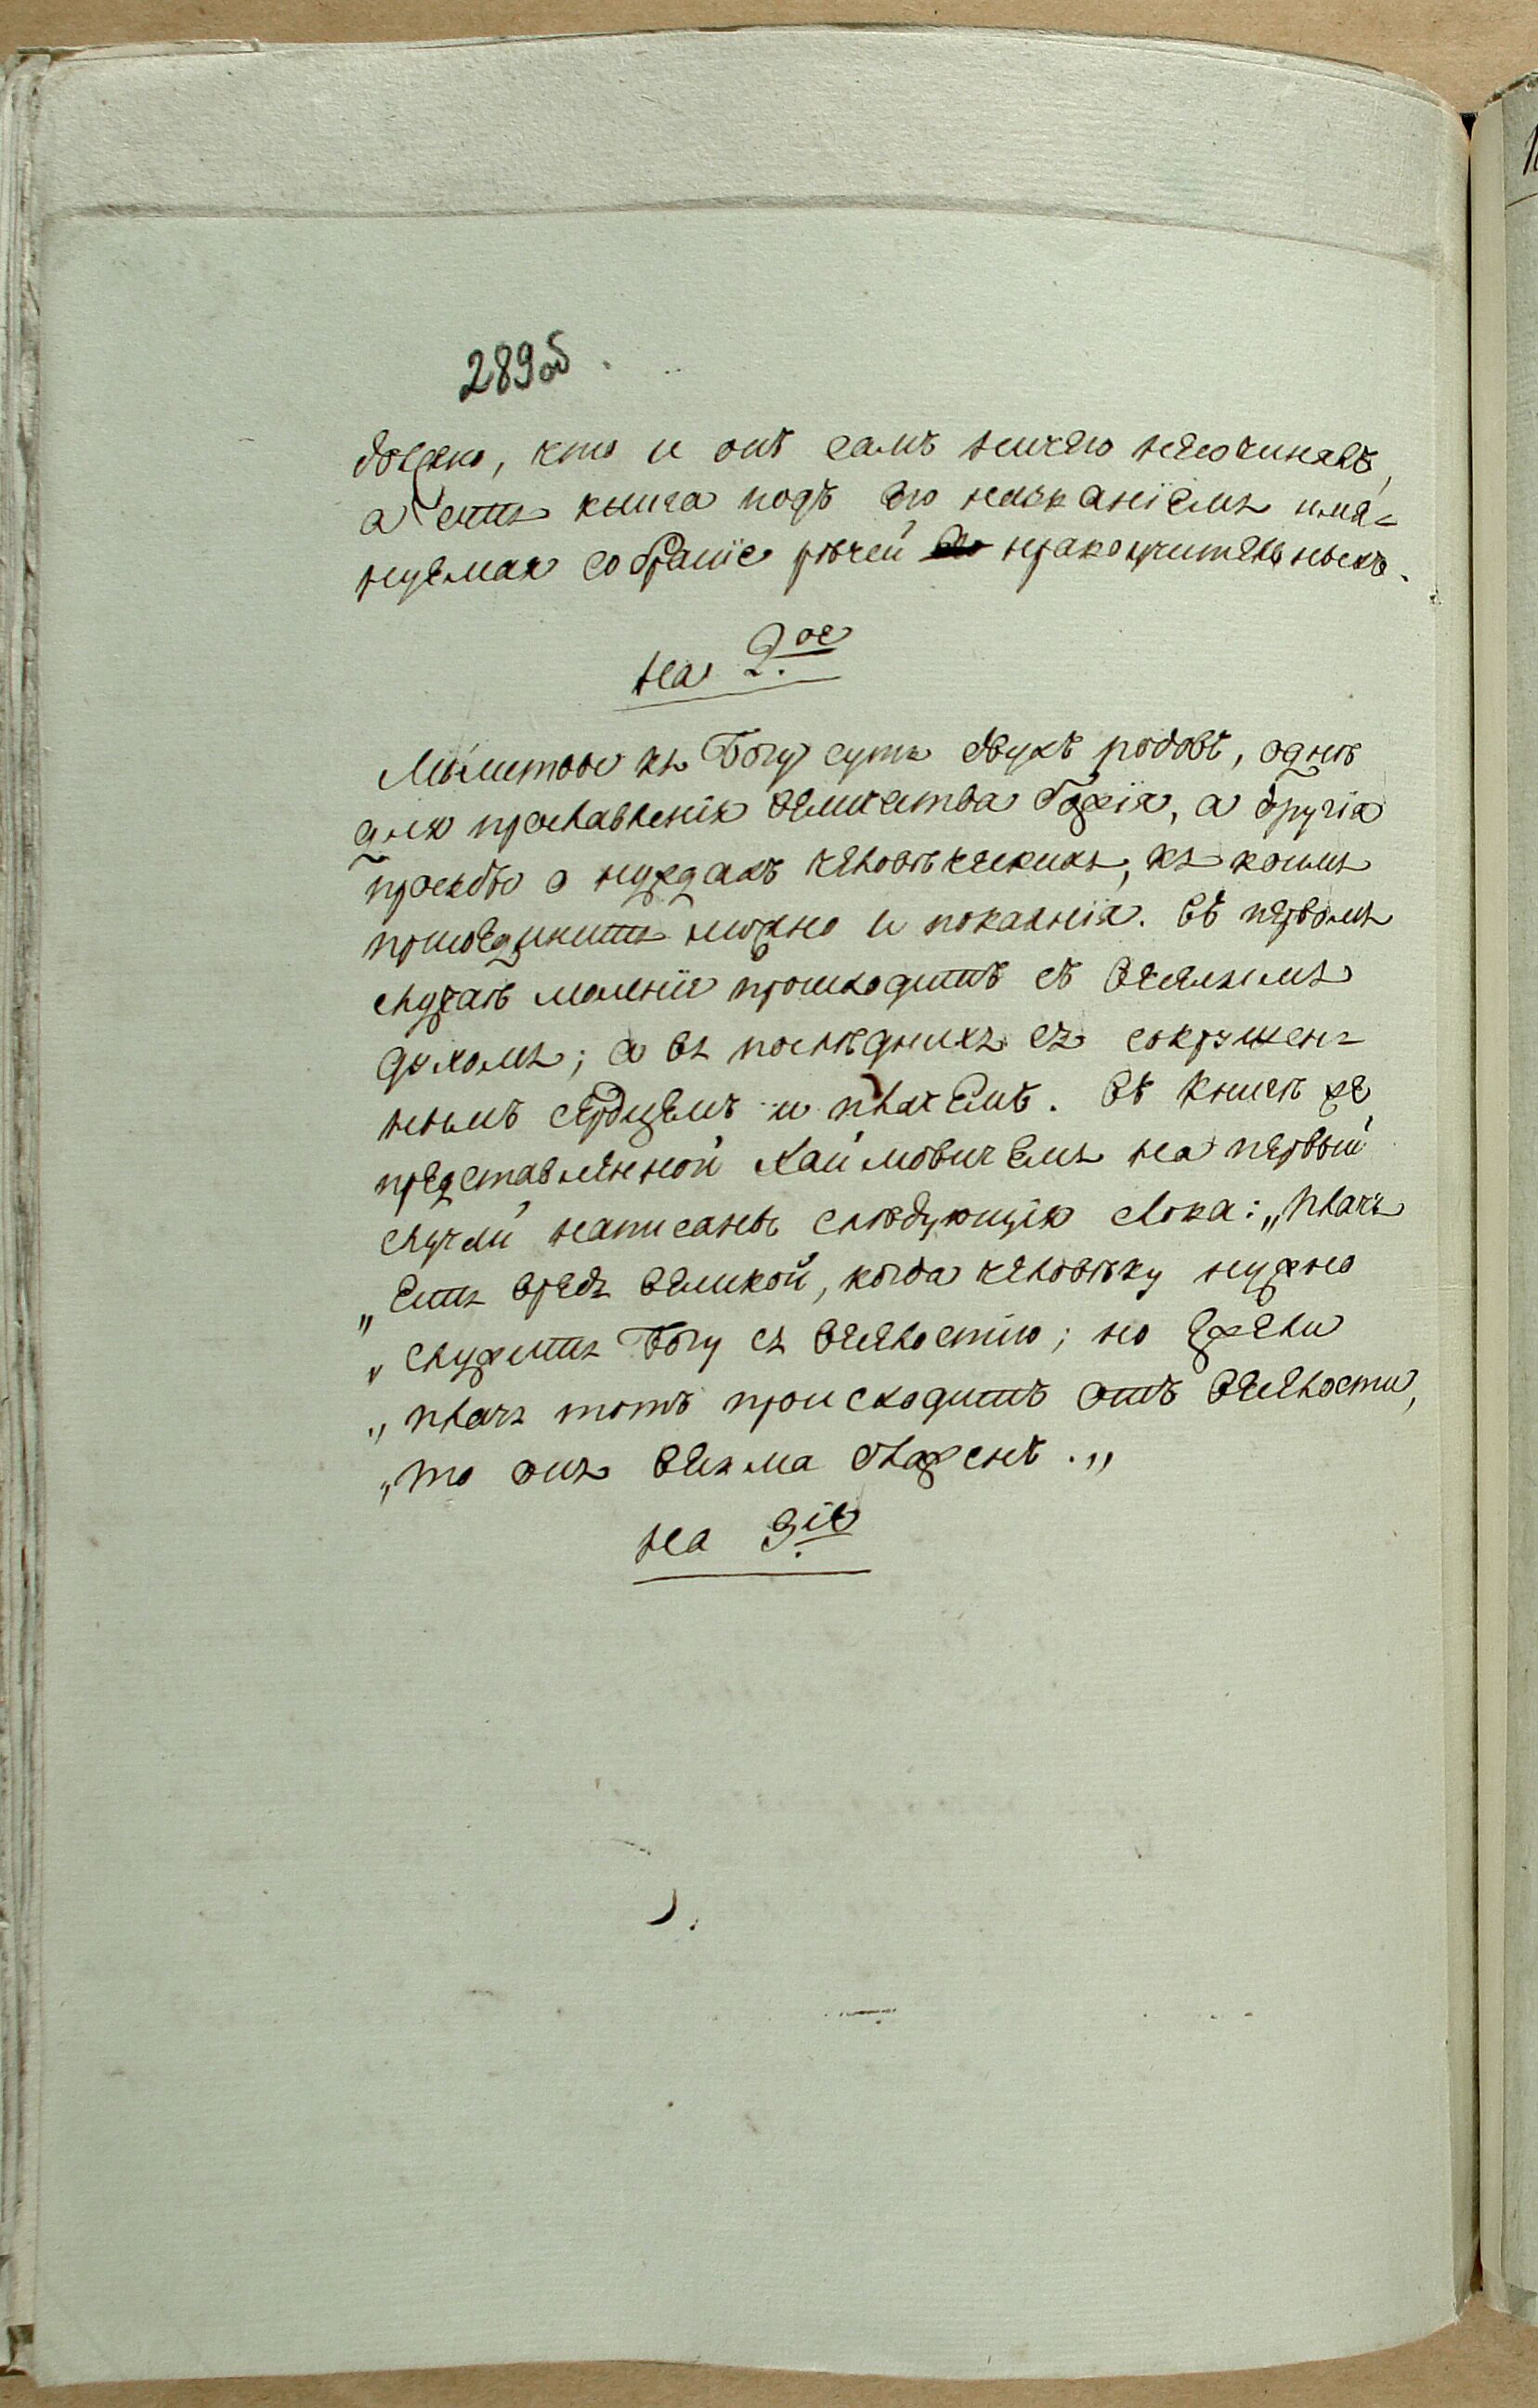 289об
что и онъ самъ ничего несочинялъ,
а есть книга подъ его имя=
нуемая собранïе рѣчей нравоучительныхъ.
на 2.ое
Молитвы къ Богу суть двухъ родовъ, однѣ
для прославленія величества Божія, а другія
прозьбы о нуждахъ человѣческихъ, къ коимъ
присоединить можно и покаянія. Въ первомъ
случаѣ моленïе происходитъ съ веселымъ
духомъ; а въ послѣднихъ съ сокрушен=
нымъ сердцемъ и плачемъ. Въ книгѣ же
представленной Хаймовичемъ на первый
случай написаны слѣдующія слова: „плачь
„есть вредъ великой, когда человѣку нужно
„служить Богу съ веселостію; но ежели
„плачь тотъ происходитъ отъ веселости,
„то онъ весьма блаженъ.„
на 3.іе